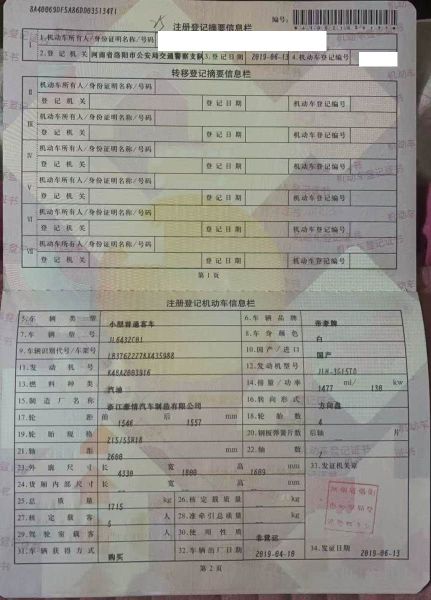 注册登记摘要信息栏 编号:
I 1.机动车所有人/身份证明名称/号码
2.登记机关 河南省洛阳市公安局交通警察支队 3.登记日期 2019-06-13 4.机动车登记编号
转移登记摘要信息栏
II 机动车所有人/身份证明名称/号码
登记机关 登记日期 机动车登记编号
III 机动车所有人/身份证明名称/号码
登记机关 登记日期 机动车登记编号
IV 机动车所有人/身份证明名称/号码
登记机关 登记日期 机动车登记编号
V 机动车所有人/身份证明名称/号码
登记机关 登记日期 机动车登记编号
VI 机动车所有人/身份证明名称/号码
登记机关 登记日期 机动车登记编号
VII 机动车所有人/身份证明名称/号码
登记机关 登记日期 机动车登记编号
第1页
注册登记机动车信息栏
5.车辆类型 小型普通客车 6.车辆品牌 帝豪牌
7.车辆型号 JL6432C01 8.车身颜色 白
9.车辆识别代号/车架号 10.国产/进口 国产
11.发动机号 12.发动机型号 JLH-3G15TD
13.燃料种类 汽油 14.排量/功率 1477 ml/ 130 kw
15.制造厂名称 浙江豪情汽车制造有限公司 16.转向形式 方向盘
17.轮距 前 1546 后 1557 mm 18.轮胎数 4
19.轮胎规格 215/55R18 20.钢板弹簧片数 后轴 片
21.轴距 2600 mm 22.轴数 2
23.外廓尺寸 长 4330 宽 1800 高 1609 mm 33.发证机关章
24.货厢内部尺寸 长 宽 高 mm
25.总质量 1715 kg 26.核定载质量 kg
27.核定载客 5 人 28.准牵引总质量 kg
29.驾驶室载客 人 30.使用性质 非营运
31.车辆获得方式 购买 32.车辆出厂日期 2019-04-10 34.发证日期 2019-06-13
第2页